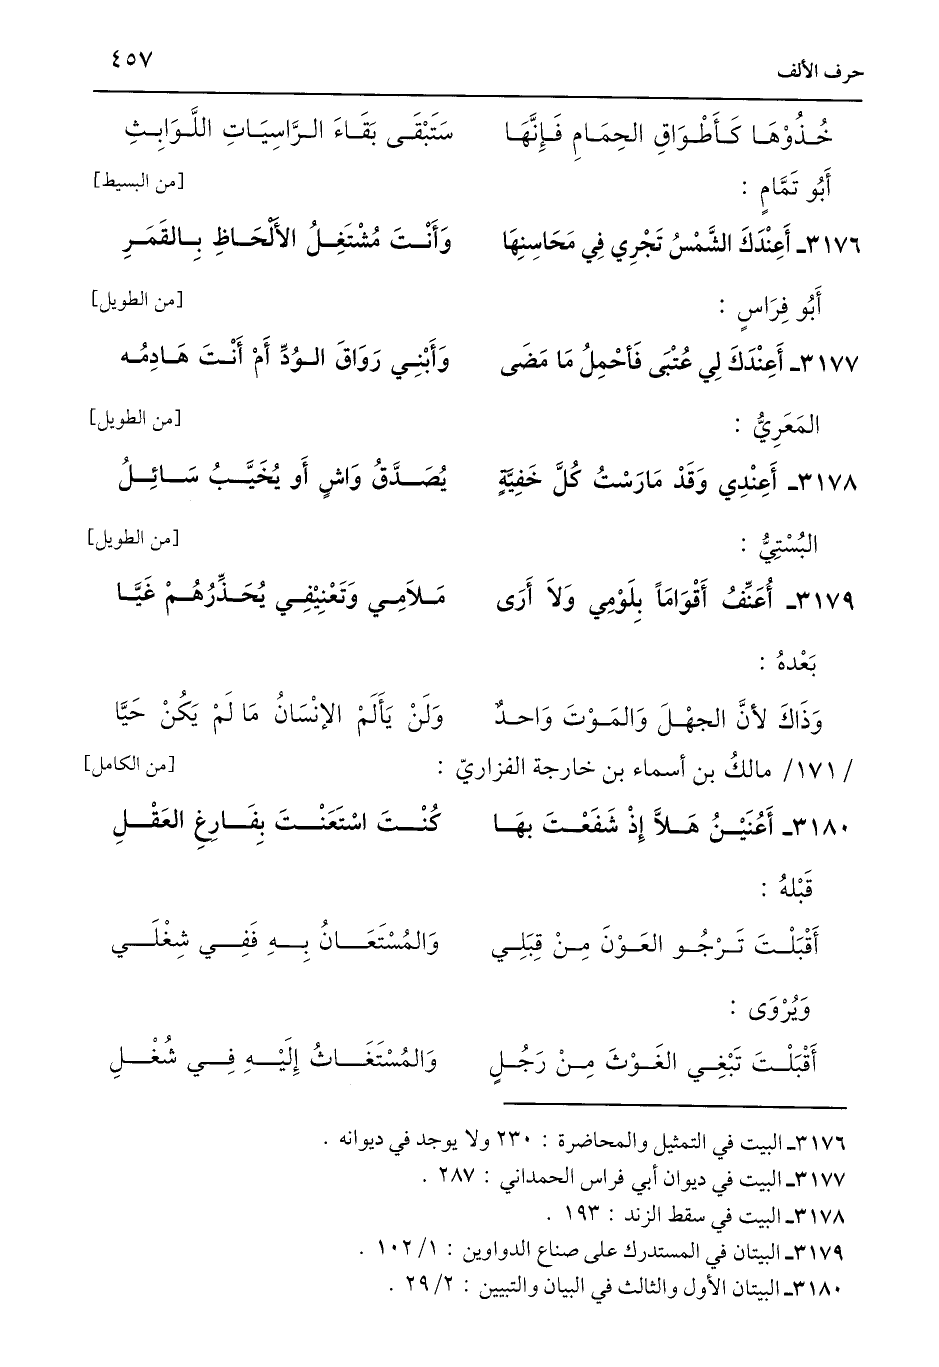 حرف الألف ٤٥٧
خُذُوْهَا كَأَطْوَاقِ الحِمَامِ فَإِنَّهَا سَتَبْقَى بَقَاءَ الرَّاسِيَاتِ اللَّوَابِثِ
أَبُو تَمَّامٍ : [من البسيط]
٣١٧٦ـ أَعِنْدَكَ الشَّمْسُ تَجْرِي فِي مَحَاسِنِهَا وَأَنْتَ مُشْتَغِلُ الأَلْحَاظِ بِالقَمَرِ
أَبُو فِرَاسٍ : [من الطويل]
٣١٧٧ـ أَعِنْدَكَ لِي عُتْبَى فَأَحْمِلُ مَا مَضَى وَأَبْنِي رَوَاقَ الوُدِّ أَمْ أَنْتَ هَادِمُه
المَعَرِيُّ : [من الطويل]
٣١٧٨ـ أَعِنْدِي وَقَدْ مَارَسْتُ كُلَّ خَفِيَّةٍ يُصَدَّقُ وَاشٍ أَو يُخَيَّبُ سَائِلُ
البُسْتِيُّ : [من الطويل]
٣١٧٩ـ أُعَنِّفُ أَقْوَاماً بِلَوْمِي وَلاَ أَرَى مَلاَمِي وَتَعْنِيْفِي يُحَذِّرُهُمْ غَيَّا
بَعْدهُ :
وَذَاكَ لأنَّ الجهْلَ وَالمَوْتَ وَاحدٌ وَلَنْ يَأَلَمْ الإنْسَانُ مَا لَمْ يَكُنْ حَيَّا
/ ١٧١/ مالكُ بن أسماء بن خارجة الفزاريّ : [من الكامل]
٣١٨٠ـ أَعُنَيْنُ هَلاَّ إِذْ شَفَعْتَ بِهَا كُنْتَ اسْتَعَنْتَ بِفَارِغِ العَقْلِ
قَبْلهُ :
أَقْبَلْتَ تَرْجُو العَوْنَ مِنْ قِبَلِي وَالمُسْتَعَانُ بِهِ فَفِي شِغْلَي
وَيُرْوَى :
أَقْبَلْتَ تَبْغِي الغَوْثَ مِنْ رَجُلٍ وَالمُسْتَغَاثُ إِلَيْهِ فِي شُغْلِ
٣١٧٦ـ البيت في التمثيل والمحاضرة : ٢٣٠ ولا يوجد في ديوانه .
٣١٧٧ـ البيت في ديوان أبي فراس الحمداني : ٢٨٧ .
٣١٧٨ـ البيت في سقط الزند : ١٩٣ .
٣١٧٩ـ البيتان في المستدرك على صناع الدواوين : ١٠٢/١ .
٣١٨٠ـ البيتان الأول والثالث في البيان والتبيين : ٢٩/٢ .